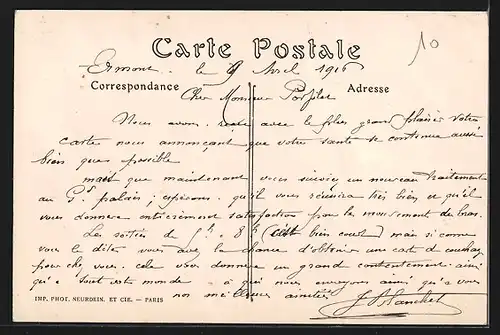 Carte Postale
10
Ermont le 9 Avril 1916
Correspondance
Adresse
Cher Monsieur
Nous avons reçu avec le plus grand plaisir votre
carte nous annonçant que votre santé se continue aussi
bien que possible
mais que maintenant vous suivez un nouveau traitement
au Gd palais, espérons qu'il vous réussira très bien et qu'il
vous donnera entièrement satisfaction pour le mouvement du bras.
Les sorties de 5h. 8h (c'est bien court) mais si comme
vous le dites vous avez la chance d'obtenir une carte de couchage
pour chez vous cela vous donnera un grand contentement ainsi
qu'à tout votre monde à qui nous envoyons ainsi qu'à vous
nos meilleures amitiés
J Blanchet
IMP. PHOT. NEURDEIN. ET CIE. — PARIS